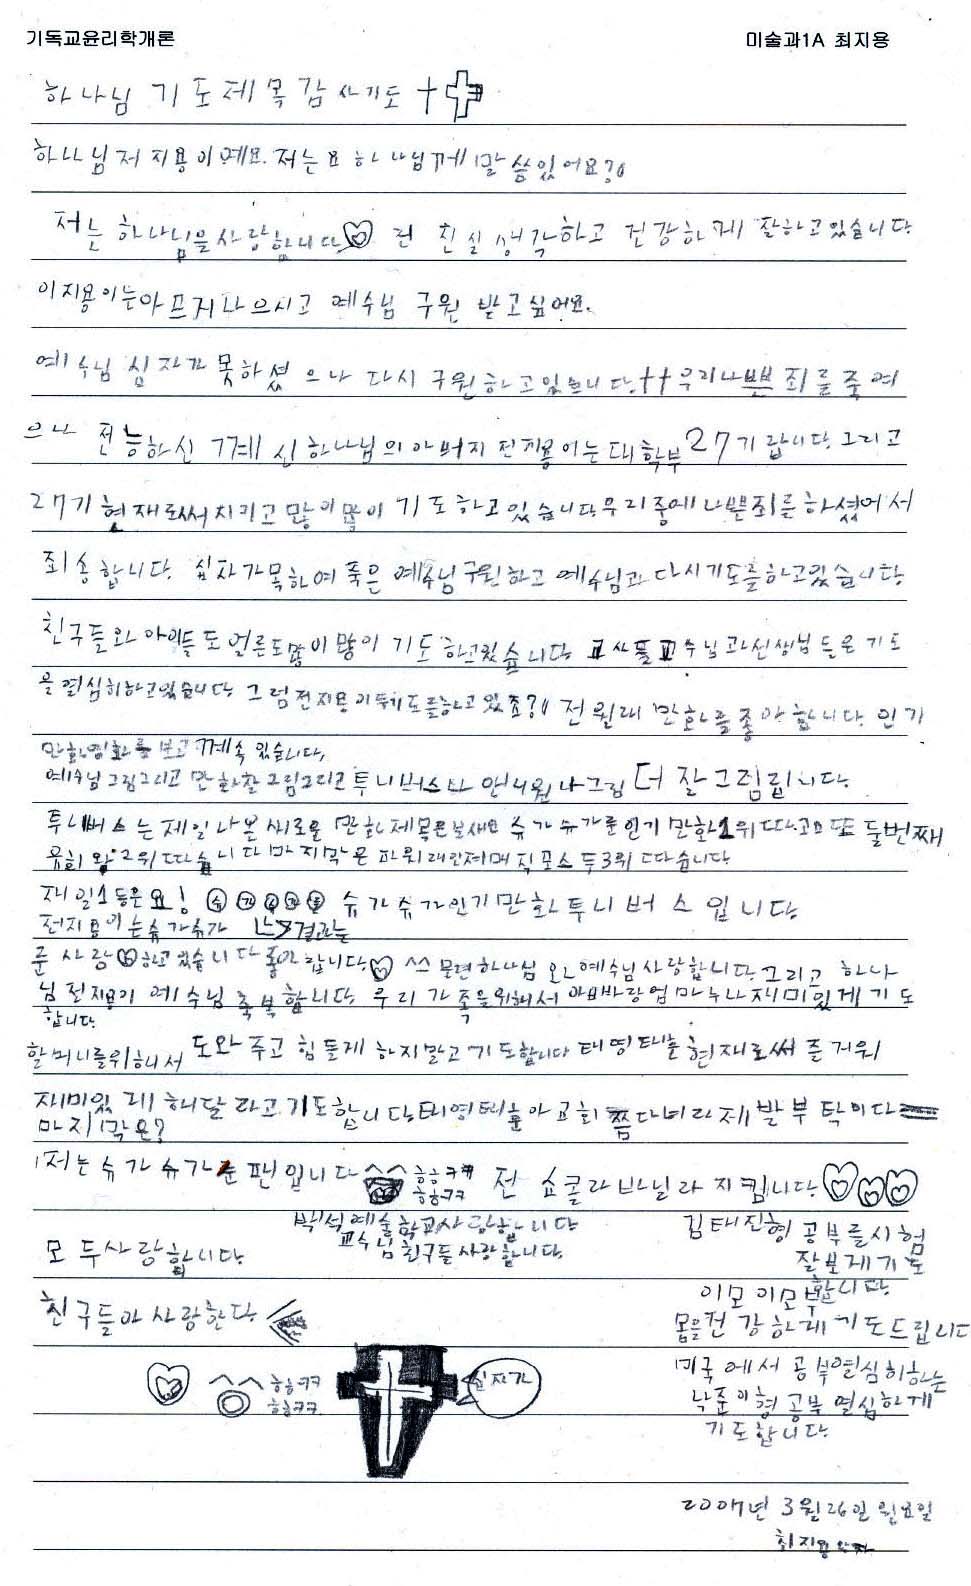 기독교윤리학개론 미술과1A 최지용
하나님 기도제목감사기도
하나님저 지용이예요. 저는요 하나님께 말씀있어요?
저는 하나님을사랑합니다 친실생각하고 건강하게 잘하고있습니다
이지용이는아프지나으시고 예수님 구원 받고싶어요.
예수님 십자가 못하셨으나 다시 구원하고있습니다. 우리나쁜 죄를죽여
으나 전능하신 하나님의아버지 전지용이는대학부27기랍니다. 그리고
27기 현재로써지키고많이많이 기도하고있습니다우리중에나쁜죄를하셨어서
죄송합니다. 십자가목하여죽은 예수님구원하고 예수님과다시기도를하고있습니다
친구들와아이들도언른도많이많이 기도하고있습니다. 교수님과선생님들은기도
을열심히하고있습니다 그럼전지용이 기도를하고있죠? 전원래 만화를좋아합니다. 인기
만화영화를보고계속있습니다.
예수님그림그리고 만화잘그림그리고투니버스와 그림더잘그립니다.
투니버스는제일나온새로운만화제목은보세요 슈가슈가룬인기만화1위 또두번째
2위 마지막은파워레인저매직포스 3위
제일1등은요! 슈가슈가룬 슈가슈가인기만화투니버스입니다
전지용이는슈가슈가 결과는
룬사랑하고있습니다좋아합니다 물련하나님와예수님사랑합니다그리고 하나
님전지용이 예수님축복합니다. 우리가족을위해서 아빠랑엄마누나재미있게기도
합니다.
할머니를위해서 도와주고힘들게하지말고기도합니다태영태훈현재로써즐거워
재미있게해달라고기도합니다. 태영태훈아교회 다녀라제발부탁이다
마지막은?
저는슈가슈가룬팬입니다 흠흠ㅋㅋ 흠흠ㅋㅋ 전 쇼콜라바닐라지킵니다
백석예술학교사랑합니다
교수님친구들사랑합니다.
모두사랑합니다.
김태진형공부를시험
잘보게기도
합니다
친구들아사랑한다
이모이모부
몹을건강하게기도드립니다
미국에서공부열심히하는
낙준이형공부열심하게
기도합니다.
흠흠ㅋㅋ
흠흠ㅋㅋ
십자가
2007년 3월26일월요일
최지용